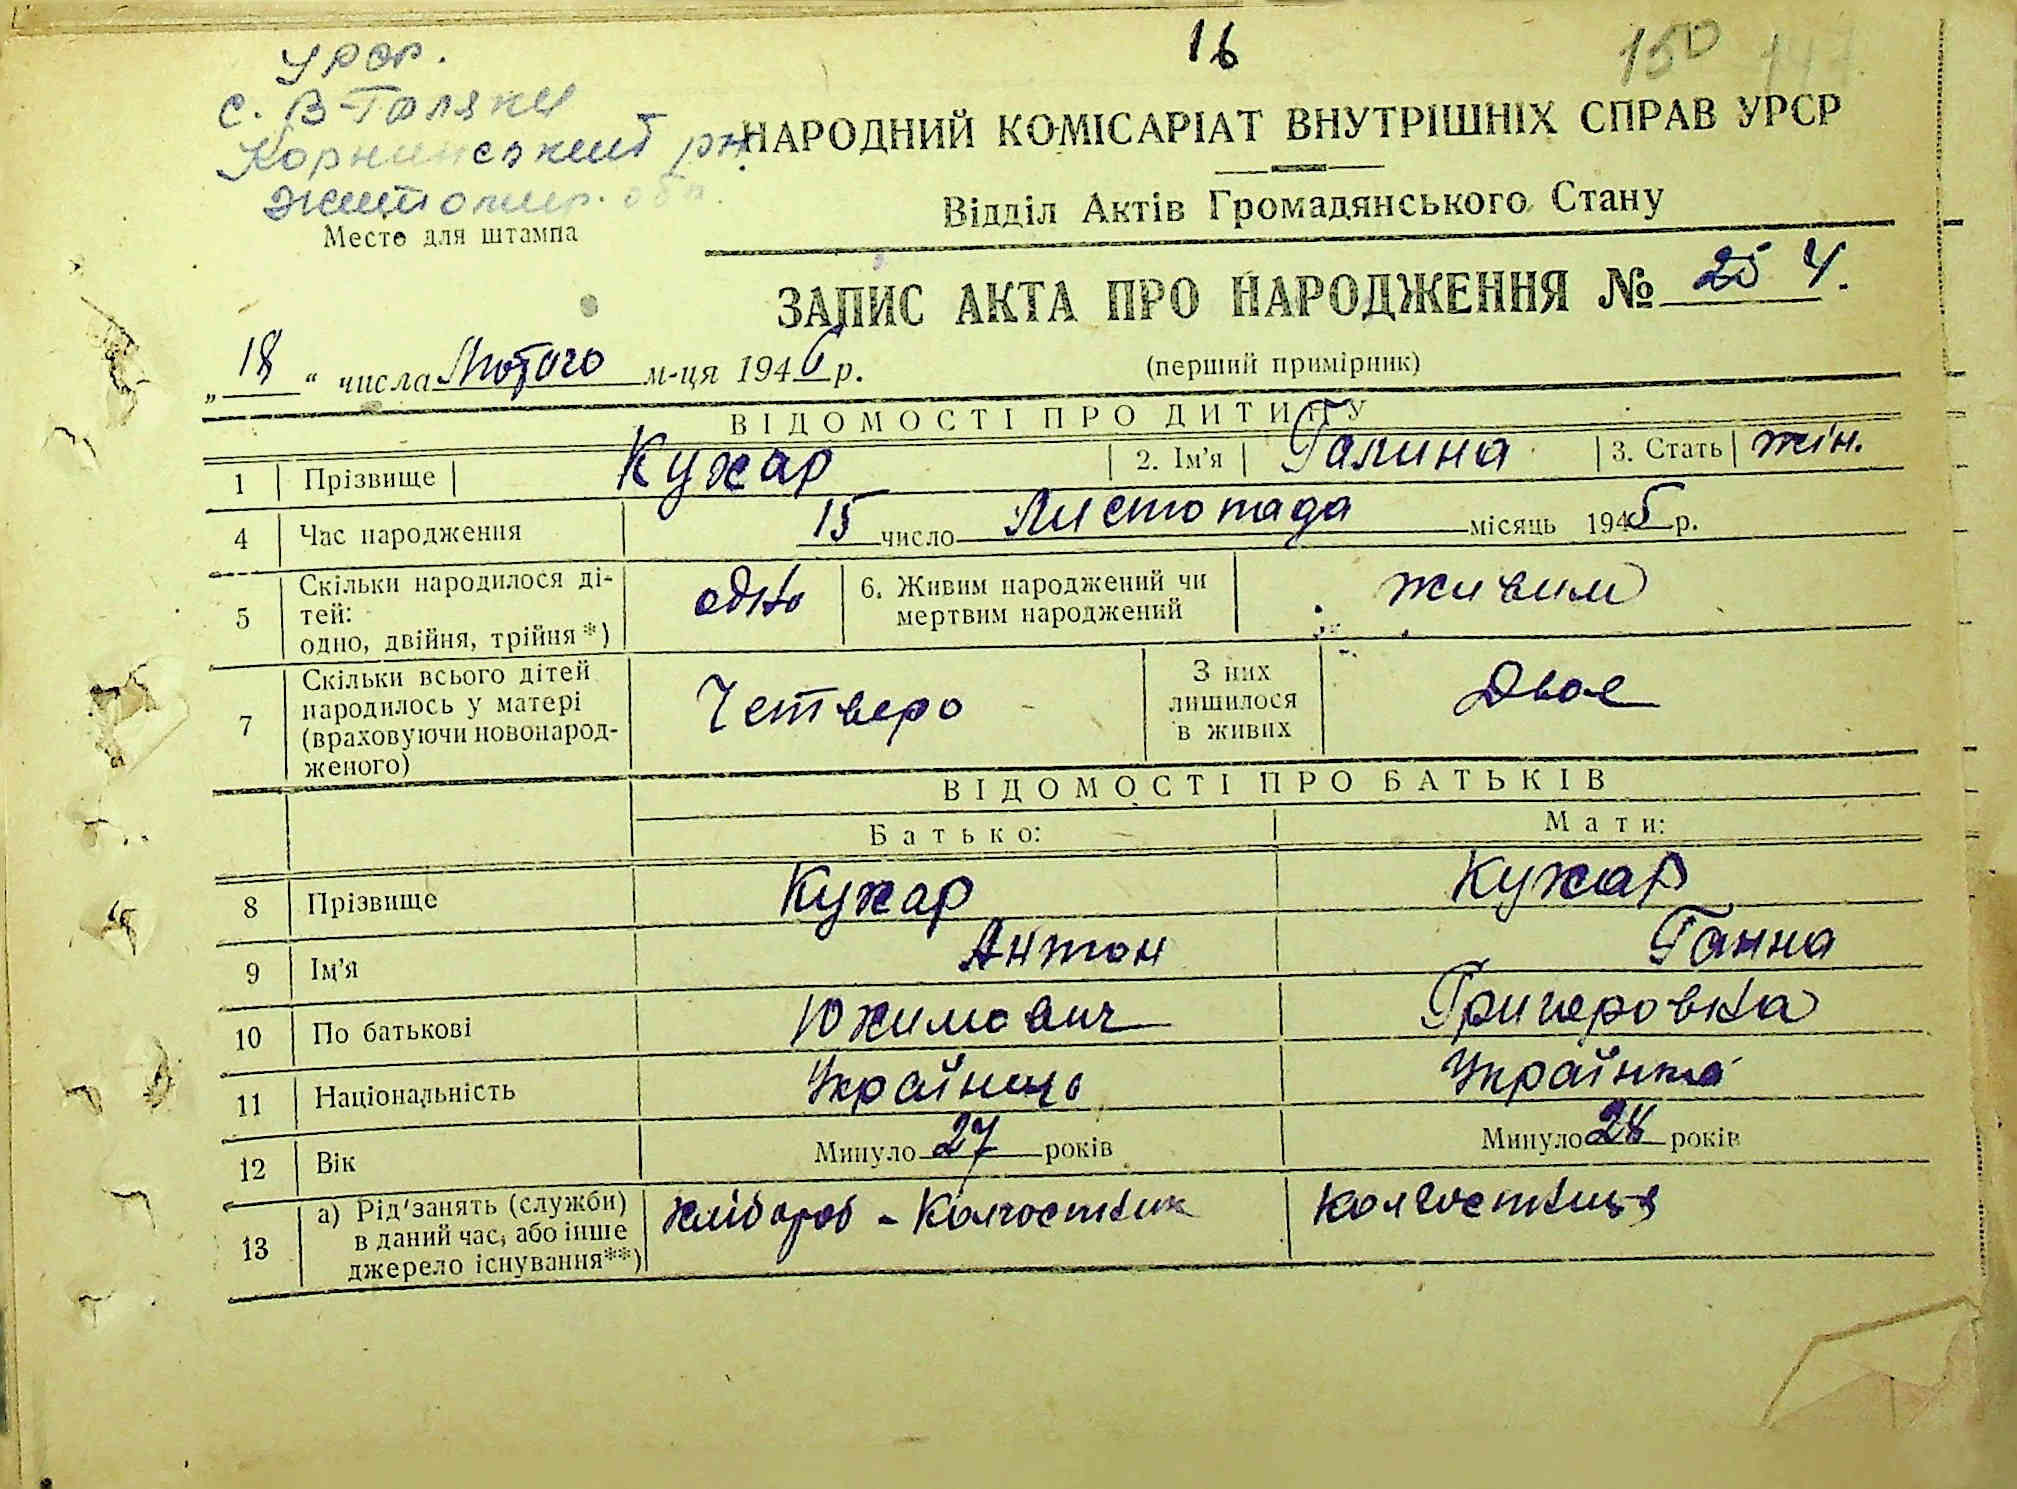 16
150
УРСР.
с. В-Голяки
Корнинський рн.
Житомир. обл.
Место для штампа
НАРОДНИЙ КОМІСАРІАТ ВНУТРІШНІХ СПРАВ УРСР
Відділ Актів Громадянського Стану
ЗАПИС АКТА ПРО НАРОДЖЕННЯ № 25 Ч.
„18“ числа Лютого м-ця 1946 р.
(перший примірник)
ВІДОМОСТІ ПРО ДИТИНУ
1 Прізвище Кухар 2. Ім'я Галина 3. Стать жін.
4 Час народження 15 число Листопада місяць 1945 р.
5 Скільки народилося ді-
тей:
одно, двійня, трійня*) одно 6. Живим народжений чи
мертвим народжений живим
7 Скільки всього дітей
народилось у матері
(враховуючи новонарод-
женого) Четверо З них
лишилося
в живих Двое
ВІДОМОСТІ ПРО БАТЬКІВ
Батько: Мати:
8 Прізвище Кухар Кухар
9 Ім'я Антон Ганна
10 По батькові Юхимович Григоровна
11 Національність Українець Українка
12 Вік Минуло 27 років Минуло 28 років
13 а) Рід занять (служби)
в даний час, або інше
джерело існування**) хлібороб - Колгостник колгостниця